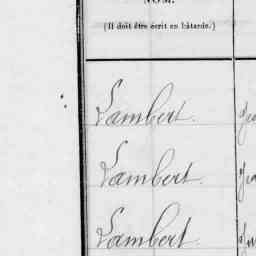 NOM.
(Il doit être écrit en bâtarde.)
Lambert.
Lambert.
Lambert.